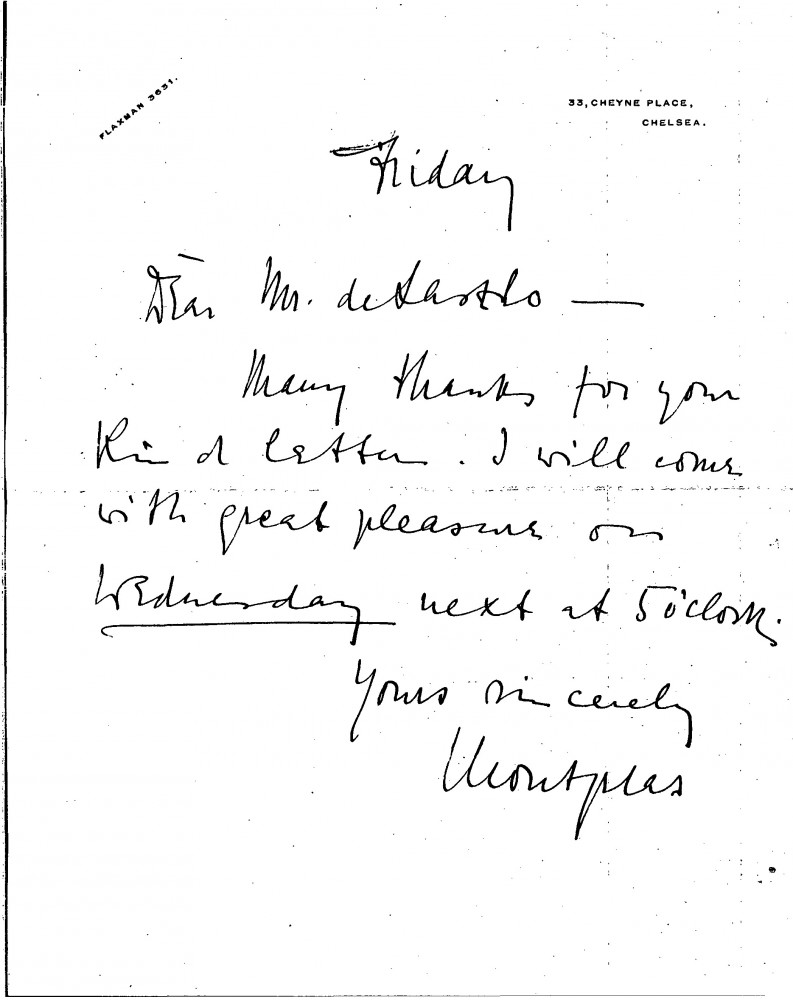 FLAXMAN 3631.
33, CHEYNE PLACE,
CHELSEA.
Friday
Dear Mr. de Laszlo —
Many thanks for your
kind letter. I will come
with great pleasure on
Wednesday next at 5 o'clock.
Yours sincerely